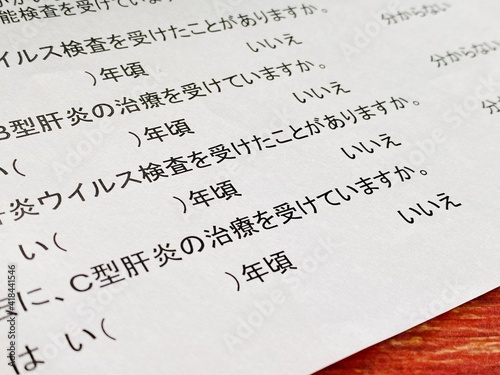 能検査を受けていますか。
イルス検査を受けたことがありますか。
)年頃 いいえ 分からない
B型肝炎の治療を受けていますか。
い( )年頃 いいえ 分からない
肝炎ウイルス検査を受けたことがありますか。
い( )年頃 いいえ 分
に、C型肝炎の治療を受けていますか。
はい( )年頃 いいえ
Adobe Stock | #418441546